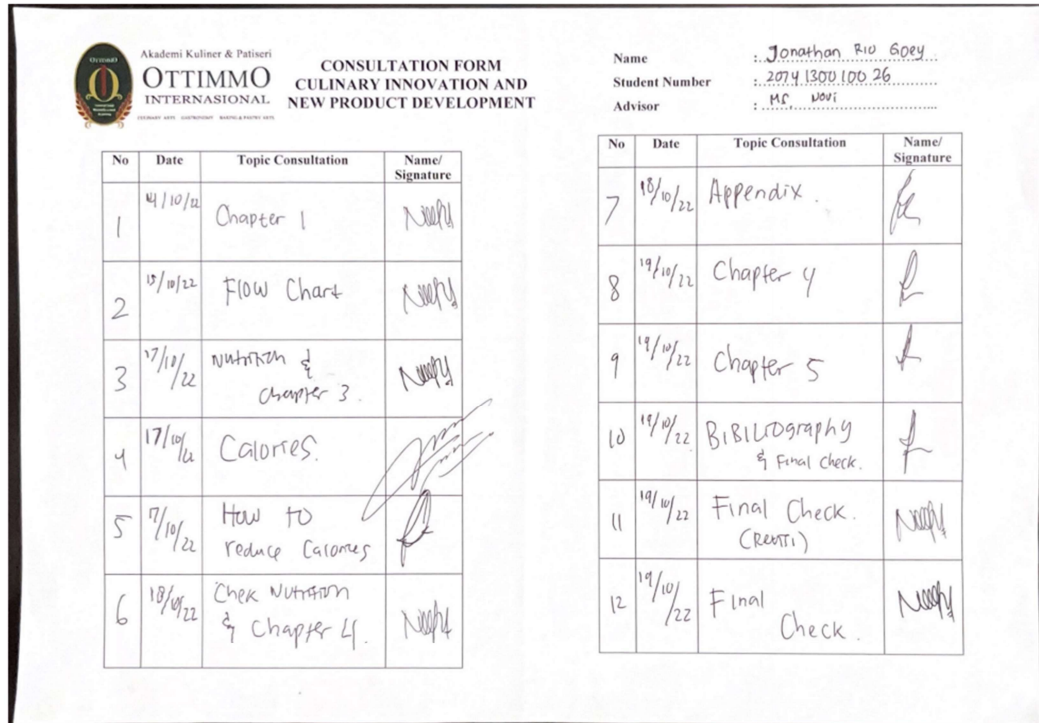 OTTIMMO
Akademi Kuliner & Patiseri
OTTIMMO
INTERNASIONAL
CULINARY ARTS GASTRONOMY BAKING & PASTRY ARTS
CONSULTATION FORM
CULINARY INNOVATION AND
NEW PRODUCT DEVELOPMENT
Name : Jonathan Rio Goey
Student Number : 2074 1300 100 26
Advisor : Ms. Novi
No Date Topic Consultation Name/
Signature
1 14/10/22 Chapter 1
2 15/10/22 Flow Chart
3 17/10/22 Nutrition &
Chapter 3.
4 17/10/22 Calories.
5 17/10/22 How to
reduce Calories
6 18/10/22 Chek Nutrition
& Chapter 4.
No Date Topic Consultation Name/
Signature
7 18/10/22 Appendix.
8 19/10/22 Chapter 4
9 19/10/22 Chapter 5
10 19/10/22 BiBiliography
& Final Check.
11 19/10/22 Final Check.
12 19/10/22 Final
Check.